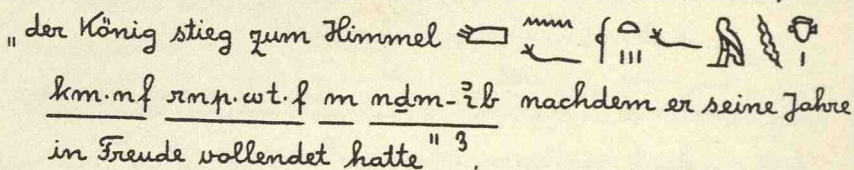 „der König stieg zum Himmel 𓆎 𓈖 𓆑 𓆳 𓏏 𓏥 𓆑 𓅓 𓇛 𓄣 𓏤
km·nf rnp.wt.f m nḏm-ỉb nachdem er seine Jahre
in Freude vollendet hatte" 3.